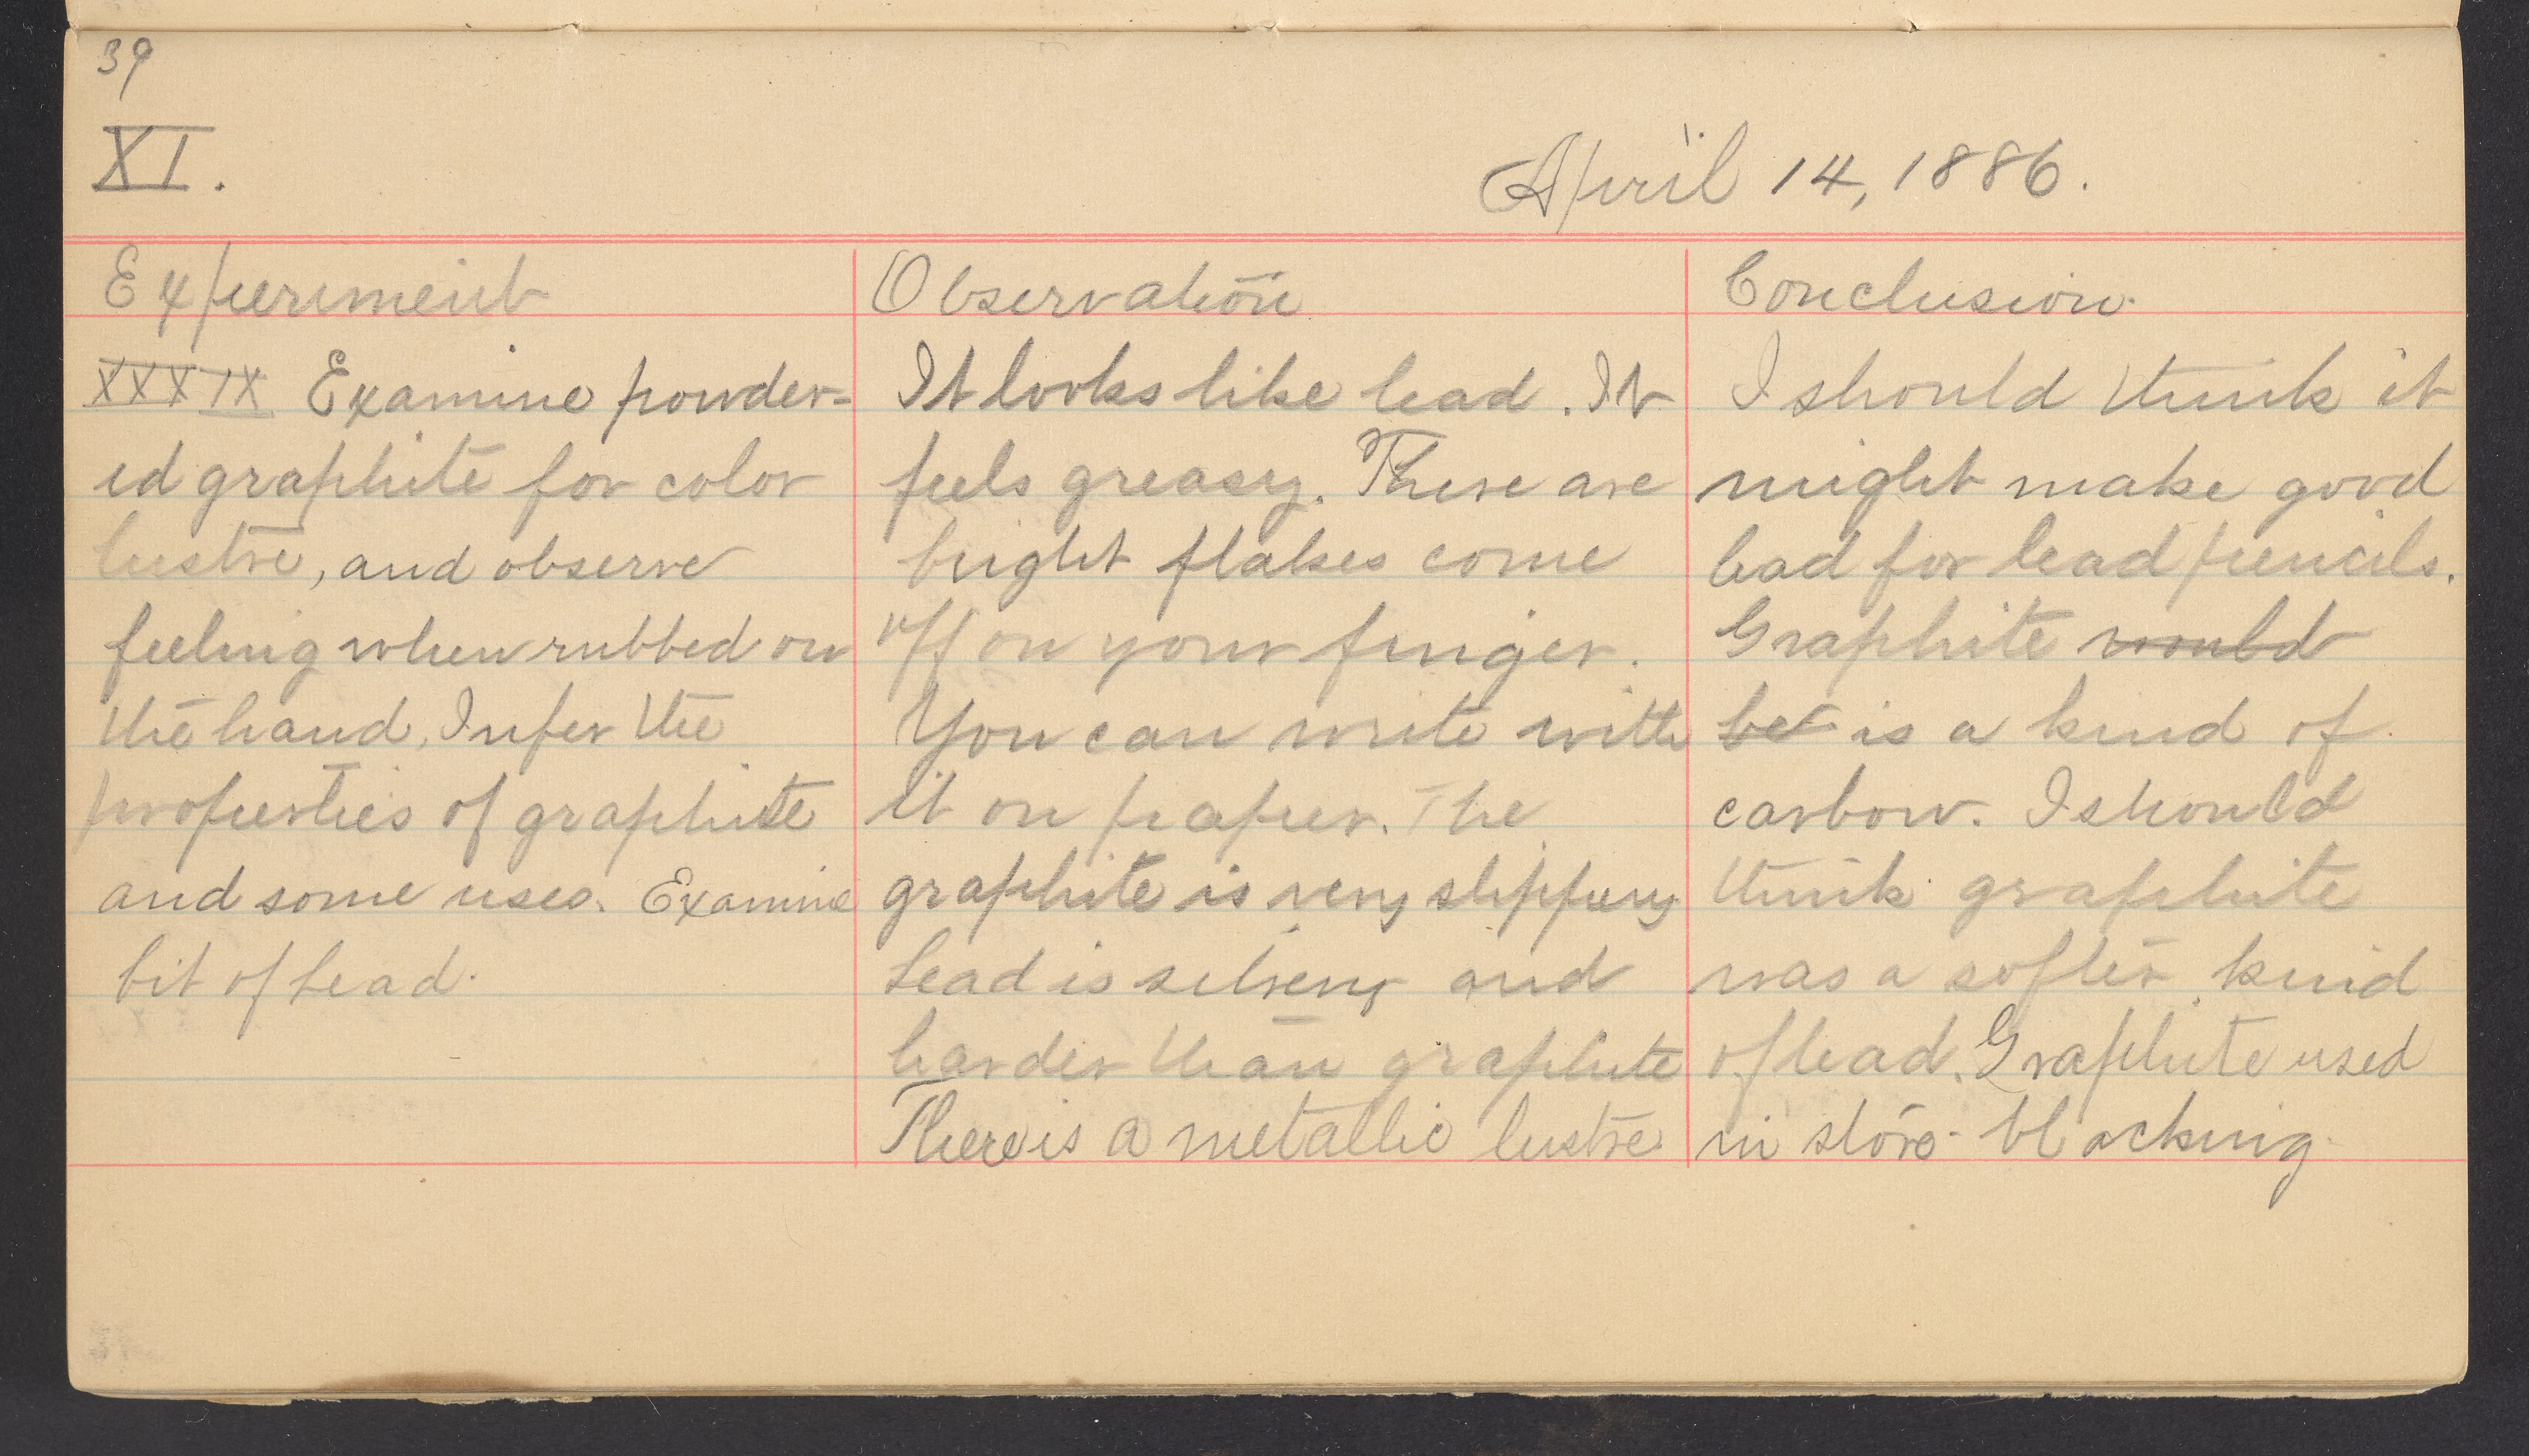 39
XI.
April 14, 1886.
Experiment
XXXIX Examine powder-
ed graphite for color
lustre, and observe
feeling when rubbed on
the hand. Infer the
properties of graphite
and some uses. Examine
bit of lead.
Observation
It looks like lead. It
feels greasy. There are
bright flakes come
off on your finger.
You can write with
it on paper. The
graphite is very slippery
Lead is silvery and
harder than graphite
There is a metallic lustre.
Conclusion.
I should think it
might make good
lead for lead pencils.
Graphite would
be is a kind of
carbon. I should
think graphite
was a softer kind
of lead. Graphite used
in stove-blacking.